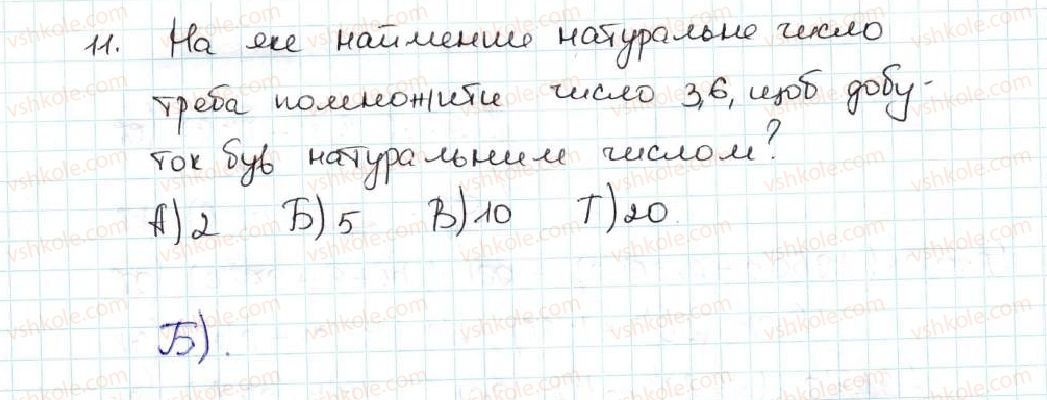 11. На яке найменше натуральне число
треба помножити число 3,6, щоб добу-
ток був натуральним числом?
А) 2 Б) 5 В) 10 Г) 20
Б).